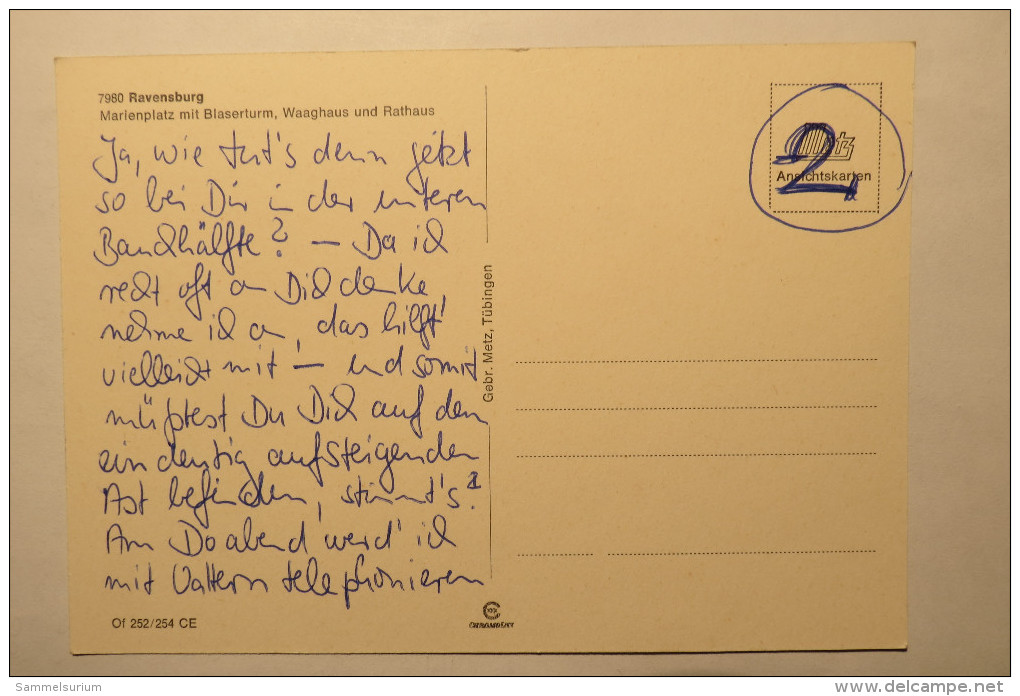 7980 Ravensburg
Marienplatz mit Blaserturm, Waaghaus und Rathaus
Ja, wie tut's denn jetzt
so bei Dir in der unteren
Bandhälfte? — Da ich
recht oft an Dich denke,
nehme ich an, das hilft
vielleicht mit — und somit
müßtest Du Dich auf dem
eindeutig aufsteigenden
Ast befinden, stimmt's?
Am Do abend werd' ich
mit Vattern telephonieren
Of 252/254 CE
Gebr. Metz, Tübingen
2
Ansichtskarten
Sammelsurium
delcampe.net